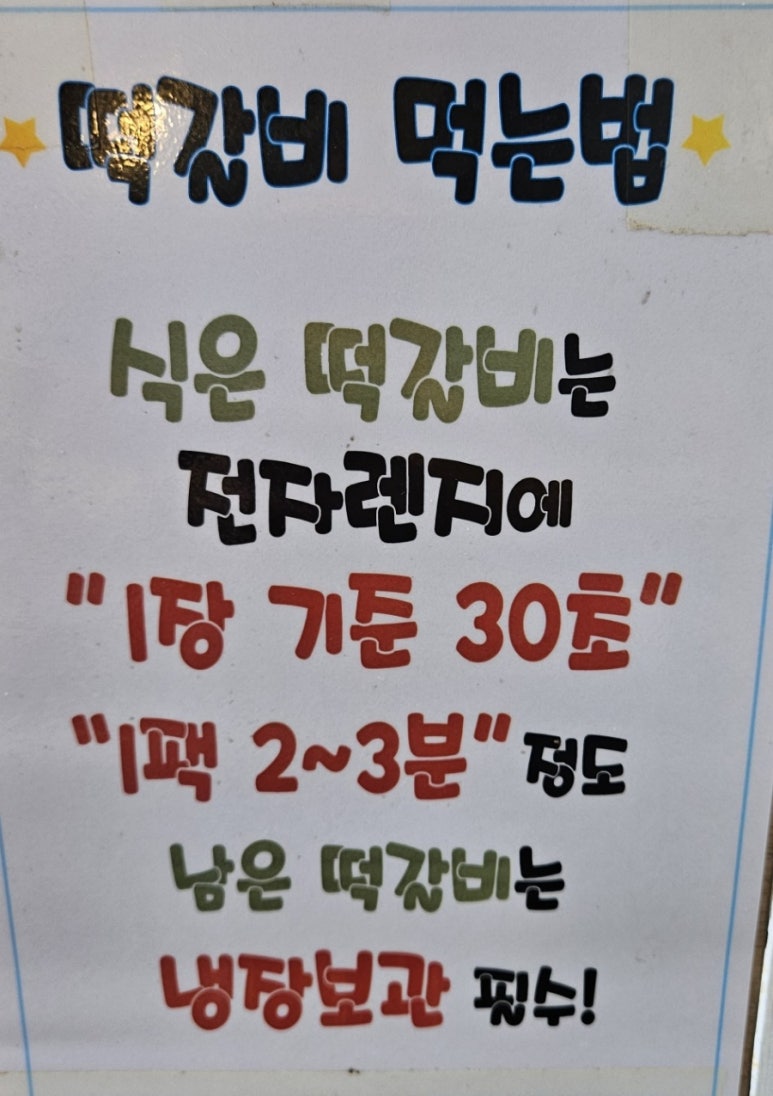 떡갈비 먹는법
식은 떡갈비는
전자렌지에
"1장 기준 30초"
"1팩 2~3분" 정도
남은 떡갈비는
냉장보관 필수!